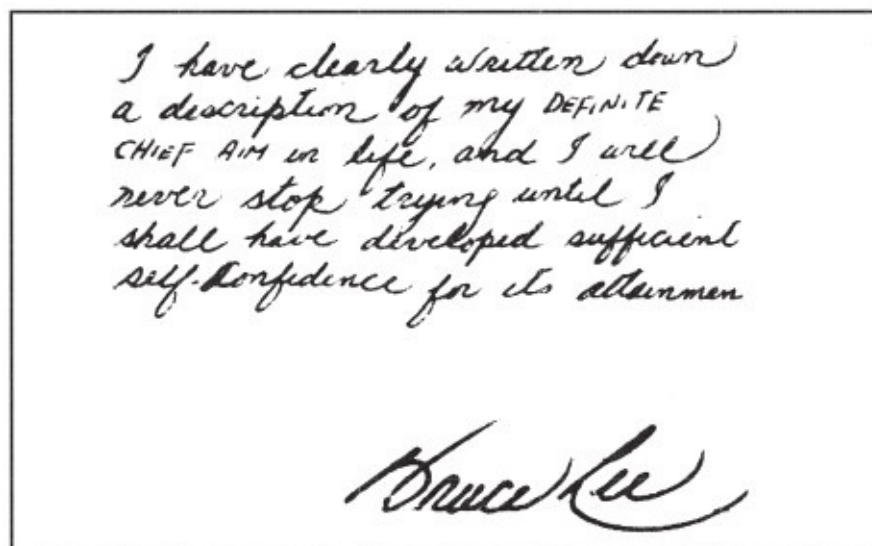 I have clearly written down
a description of my DEFINITE
CHIEF AIM in life, and I will
never stop trying until I
shall have developed sufficient
self-confidence for its attainmen
Bruce Lee